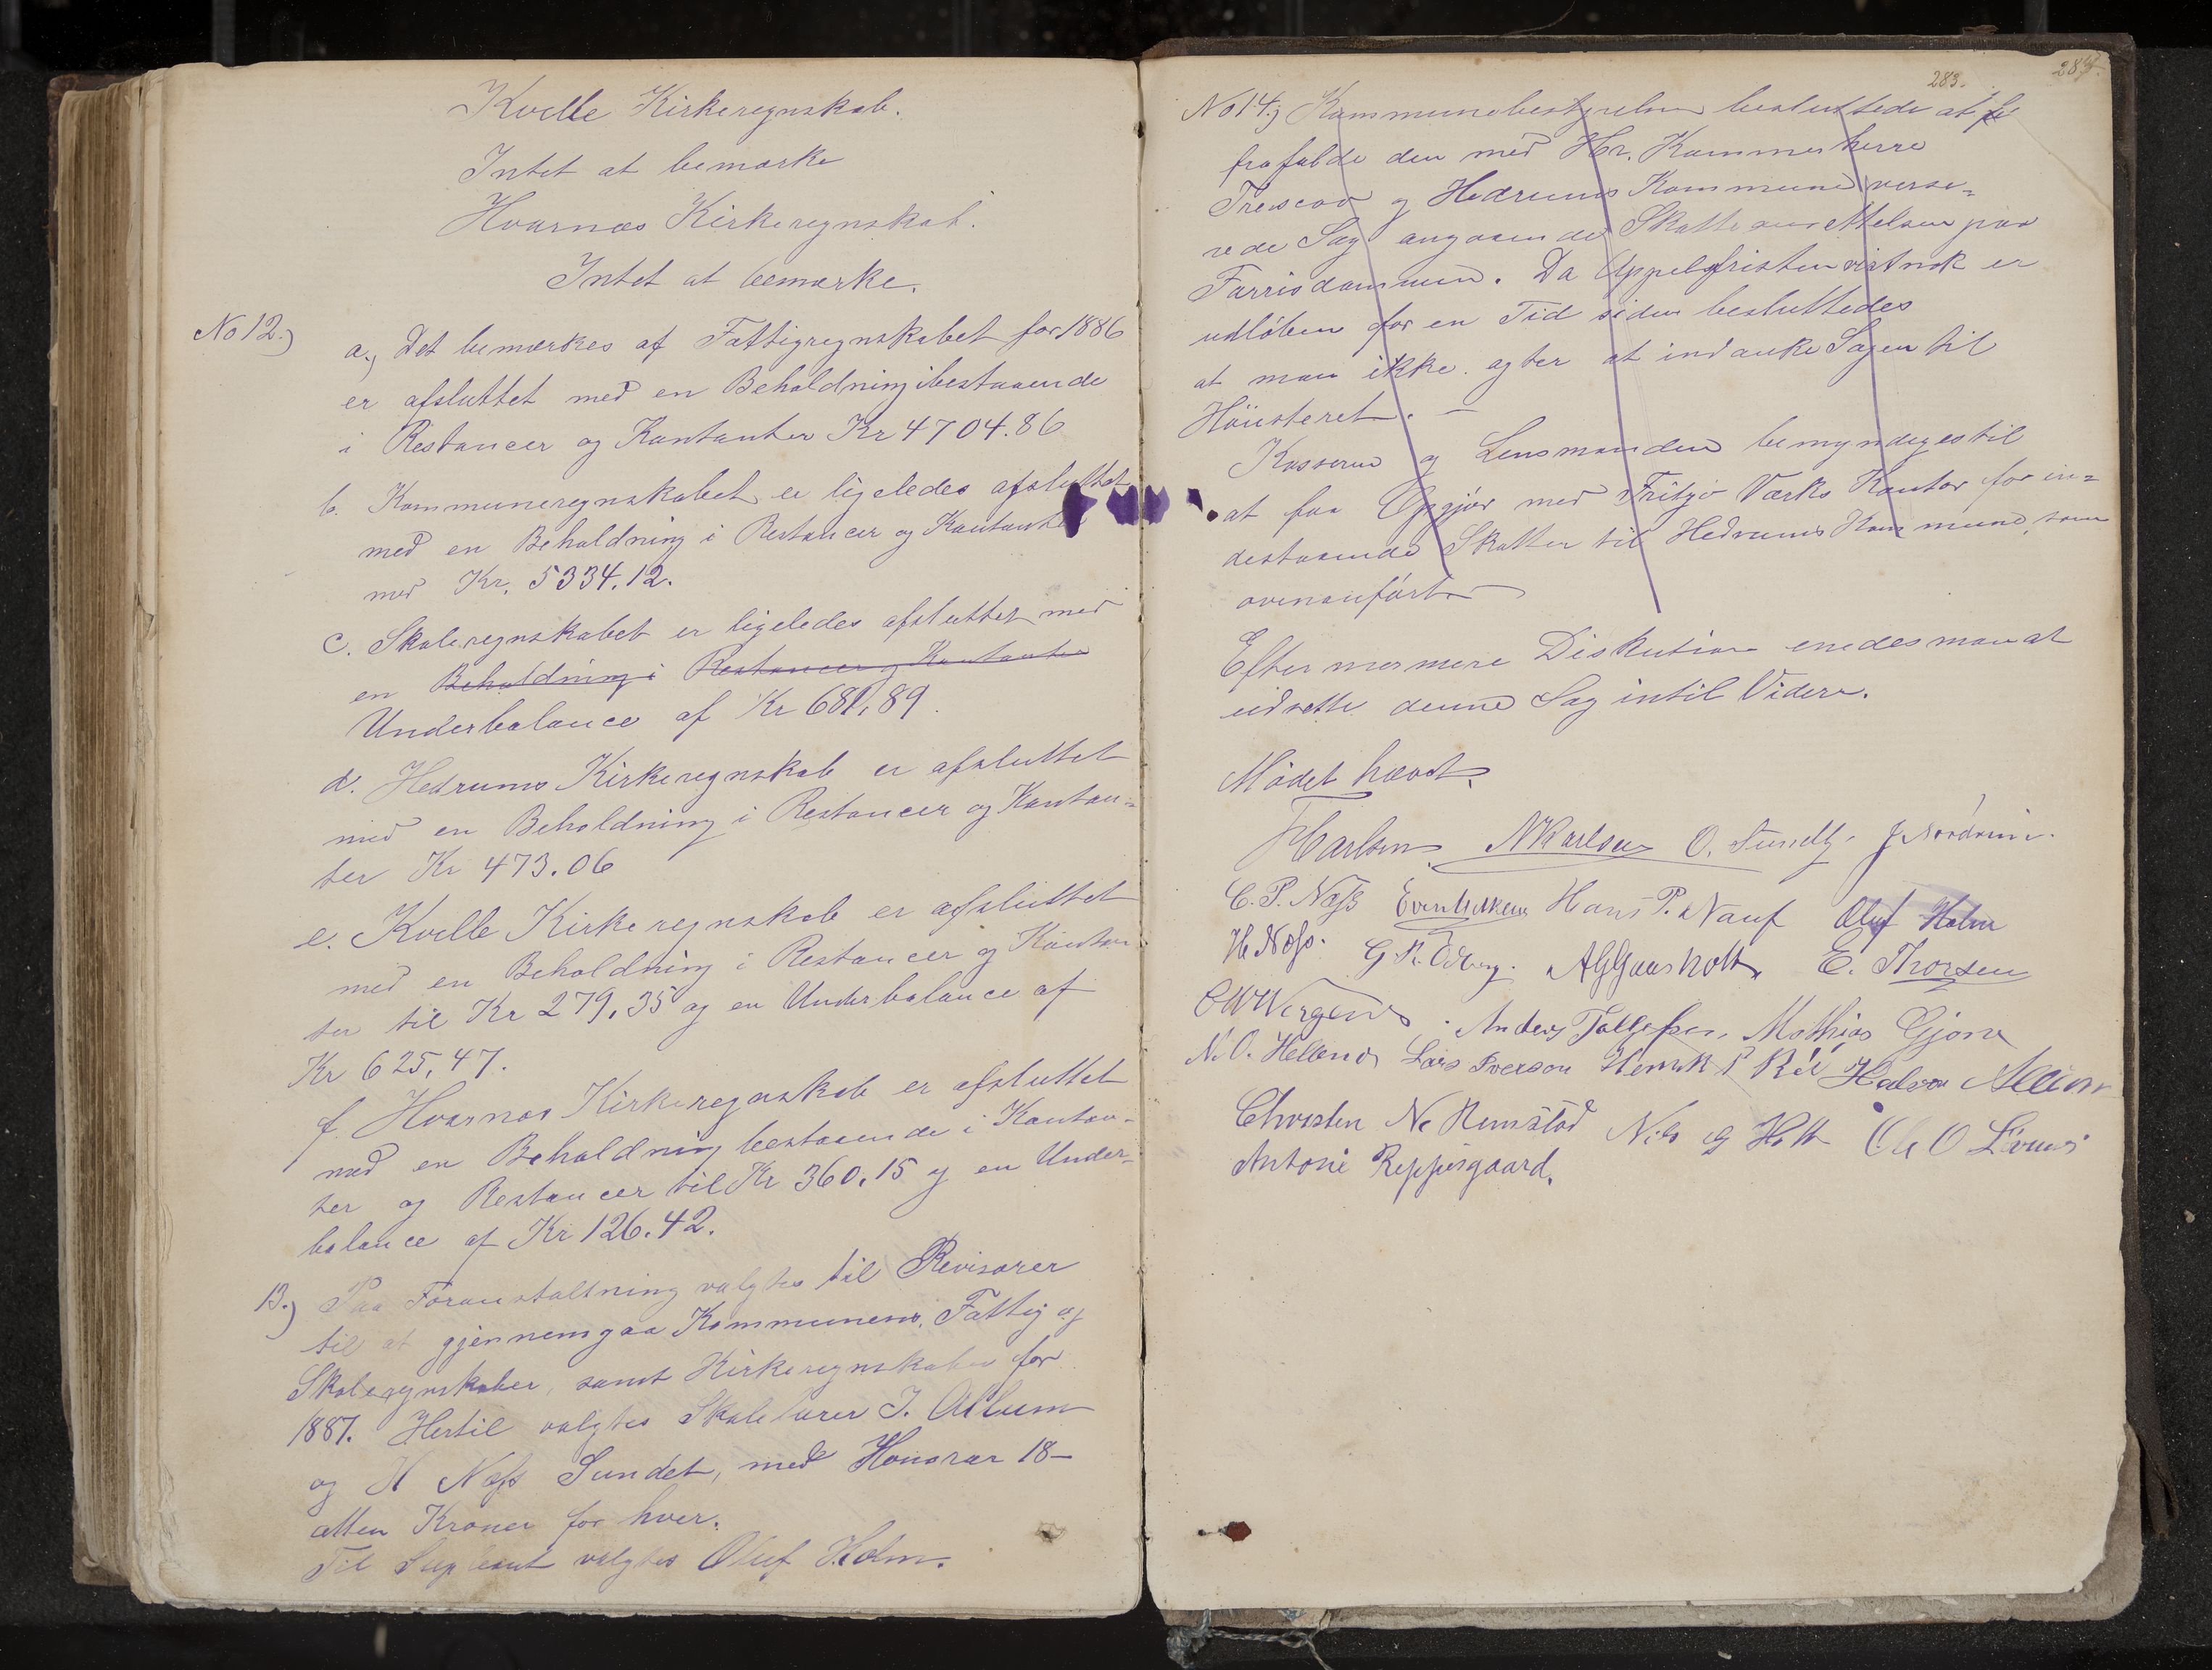 Kvelle Kirkeregnskab.
Intet at bemærke
Hvarnæs Kirkeregnskab.
Intet at bemærke.
No 12.) a, Det bemærkes at Fattigregnskabet for 1886
er afsluttet med en Beholdning bestaaende
i Restancer og Kontanter Kr 4704.86
b. Kommuneregnskabet er ligeledes afsluttet
med en Beholdning i Restancer og Kontanter
med Kr. 5334.12.
c. Skoleregnskabet er ligeledes afsluttet med
en Beholdning i Restancer og Kontanter
Underbalance af Kr 681,89.
d. Hedrums Kirkeregnskab er afsluttet
med en Beholdning i Restancer og Kontan-
ter Kr 473.06
e. Kvelle Kirkeregnskab er afsluttet
med en Beholdning i Restancer og Kontan
ter til Kr 279,35 og en Underbalance af
Kr 625,47.
f. Hvarnæs Kirkeregnskab er afsluttet
med en Beholdning bestaaende i Kontan-
ter og Restancer til Kr 360.15 og en Under-
balance af Kr 126.42.
13.) Paa Foranstaltning valgtes til Revisorer
til at gjennemgaa Kommunens, Fattig og
Skoleregnskaber, samt Kirkeregnskaber for
1887. Hertil valgtes Skolelærer J. Allum
og H Næss Sundet, med Honorar 18-
atten Kroner for hver.
Til Supleant valgtes Oluf Holm.
283.
No 14.) Kommunebestyrelsen besluttede at
frafalde den med Hr. Kammerherre
Trescow og Hedrums Kommune verse-
rede Sag angaaende Skatteansættelsen paa
Farrisdammen. Da Appelfristen vistnok er
udløben for en Tid siden besluttedes
at man ikke agter at indanke Sagen til
Høiesteret. -
Kasserer og Lensmanden bemyndiges til
at faa Opgjør med Fritzø Værks Kontor for in-
destaaende Skatter til Hedrums Kommune, som
ovenanført.
Efter nærmere Diskution enedes man at
udsætte denne Sag intil Videre.
Mødet hævet.
Karlsen N Karlsen O. Sundby J Nordrum.
C. P. Næss Hans P. Nauf Oluf Holm
H Næss. G A. Odberg. A G Gaasholt, E. Thorsen
Anders Tollefsen, Mathias Gjone
N. O. Helland Lars Iverson Henrik Halvor Allum
Christen N. Rimstad Nils G Holt Ole O
Antoni Reppesgaard.